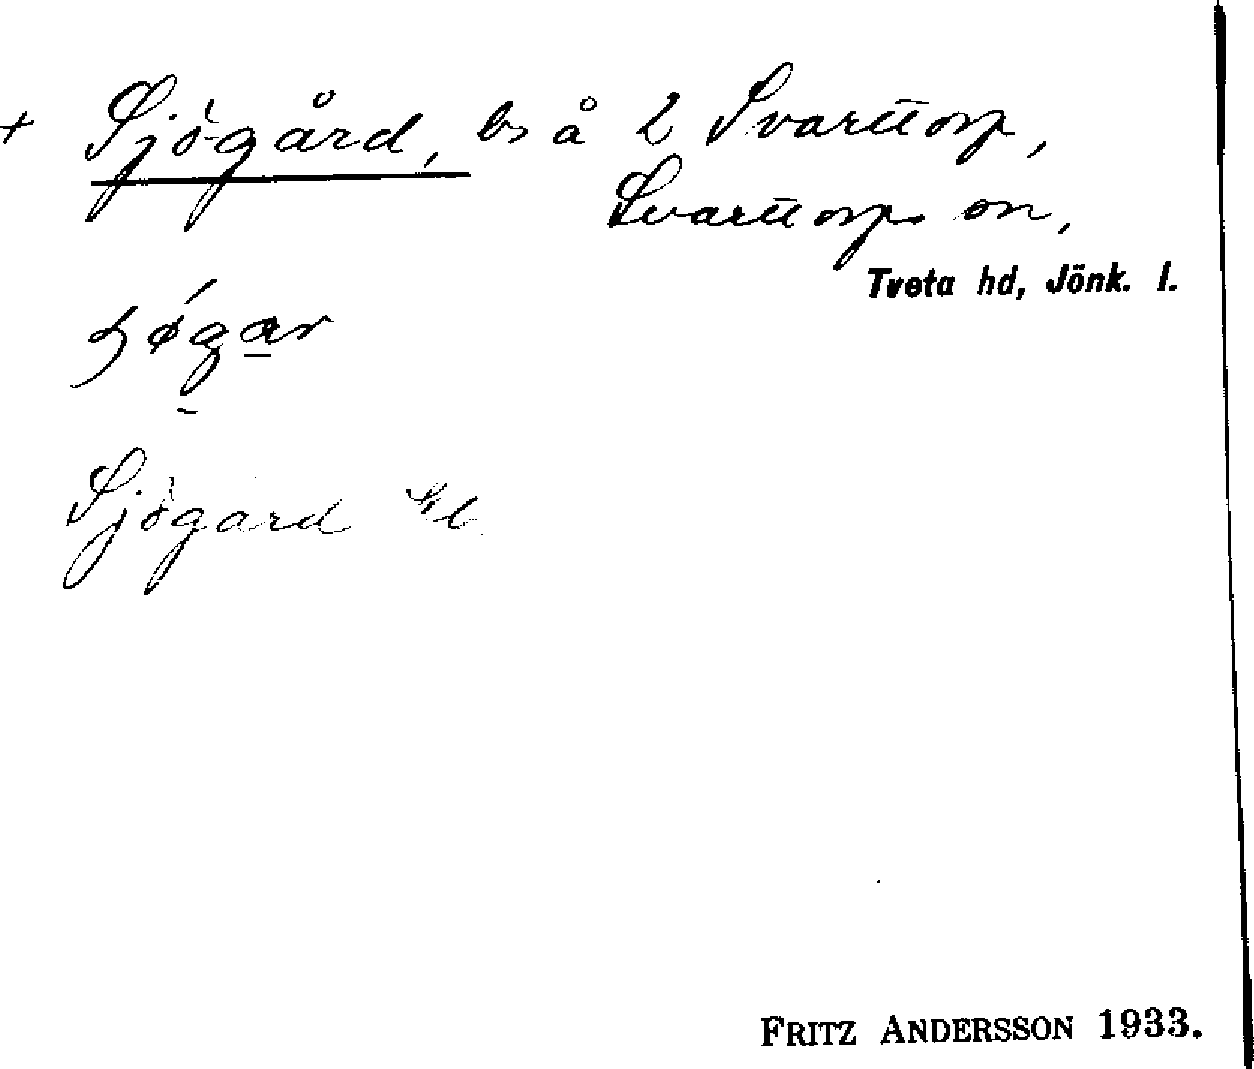 + Sjögård, bs å 2 Svarttorp,
Svarttorps sn,
Tveta hd, Jönk. l.
Sjögård
FRITZ ANDERSSON 1933.